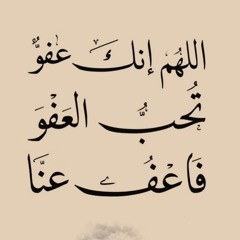 اللهُم إنكَ عَفوٌّ
تُحبُّ العَفْوَ
فَاعْفُ عنَّا